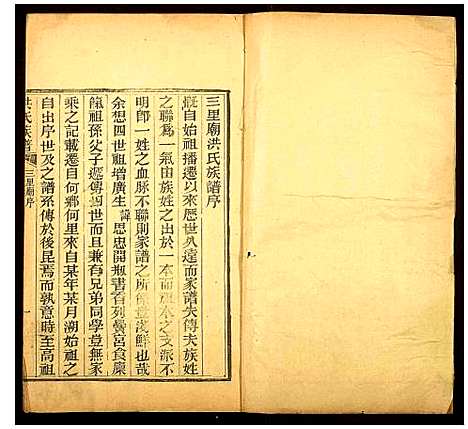 三里廟洪氏族譜序
慨自始祖播遷以來歷世久遠而家譜失傳夫族姓
之聯爲一氣由族姓之出於一本而祖本之支派不
明卽一姓之血脉不聯則家譜之所係豈淺鮮也哉
余想四世祖增廣生諱思忠開瓶書香列黌宮食廩
餼祖孫父子遞傳四世而且兼有兄弟同學豈無家
乘之記載遷自何鄉何里來自某年某月溯始祖之
自出序世及之譜系傳於後昆焉而孰意時至高祖
洪氏族譜 三里廟序 一